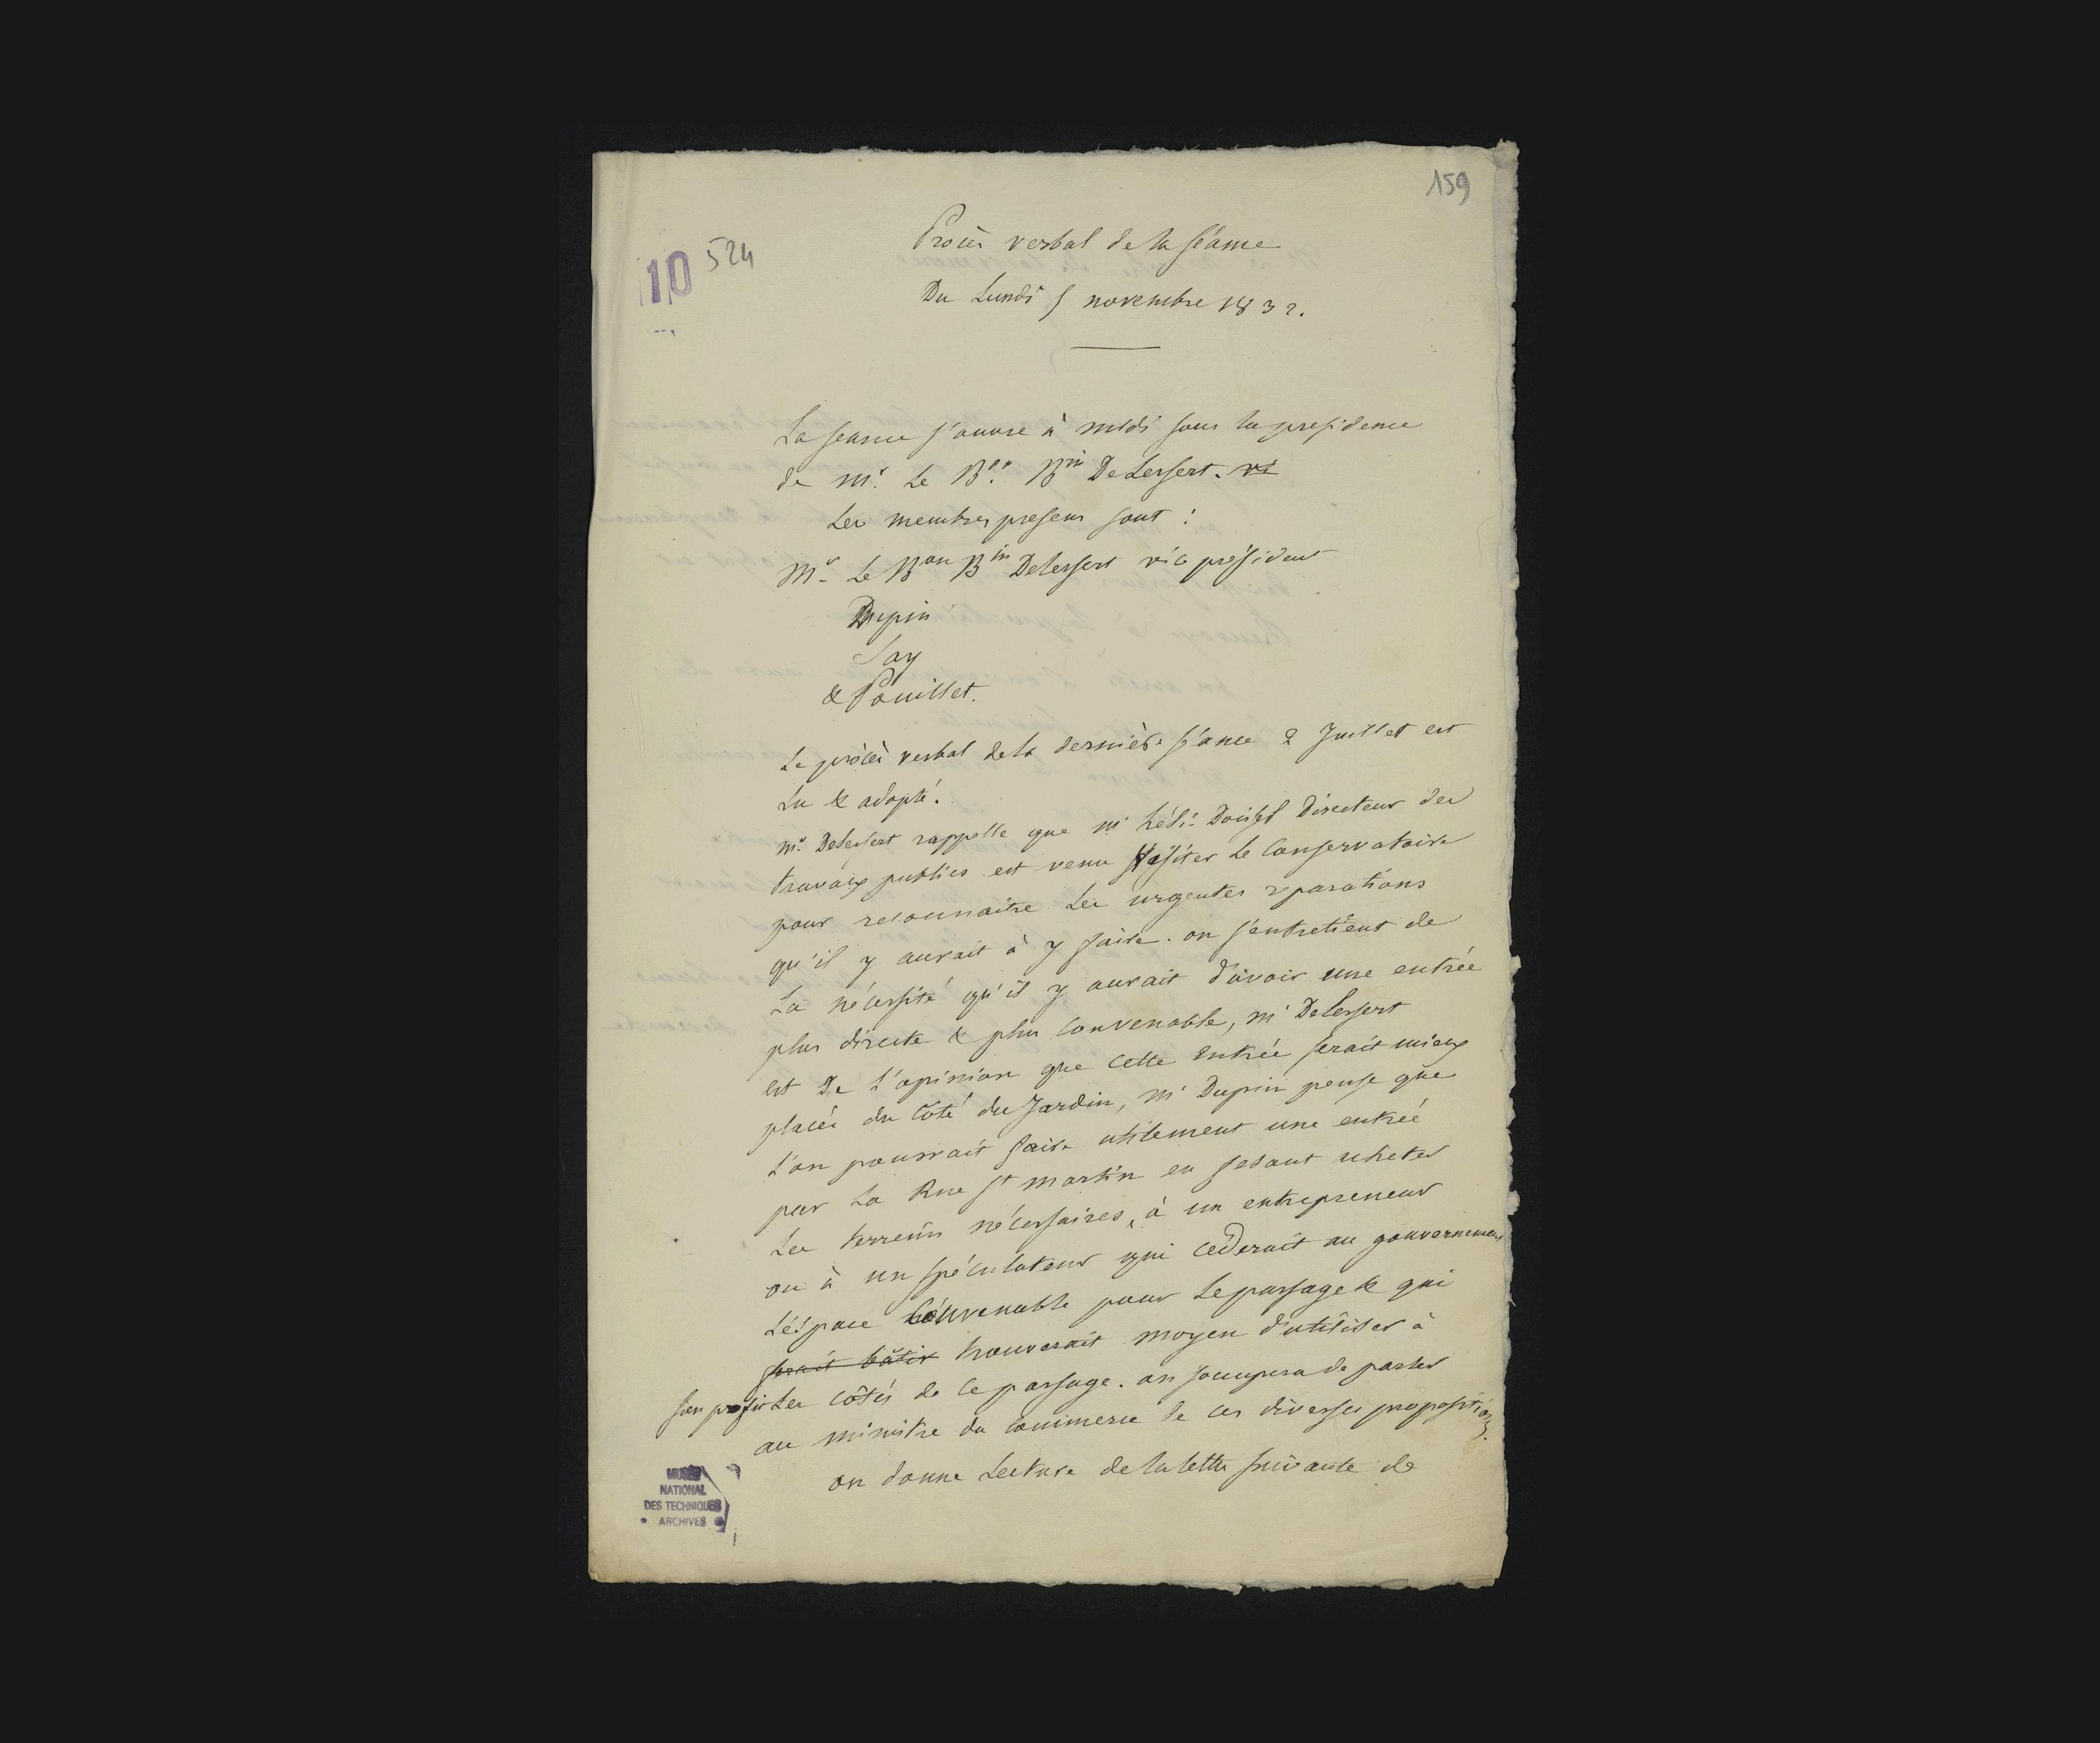 159
10 524
Procès verbal de la séance
Du Lundi 5 novembre 1832.
La seance s'ouvre à midi sous la presidence
de Mr. Le Bon. Bin DeLessert. vi
Les membres presens sont :
Mr. Le Bon Bin Delessert vice président
Dupin
Say
& Pouillet.
Le procès verbal de la dernière séance 2 Juillet est
Lu & adopté.
Mr. Delessert rappelle que Mr directeur des
travaux publics est venu visiter Le Conservatoire
pour reconnaitre Les urgentes reparations
qu'il y aurait à y faire. on s'entretient de
La nécessité qu'il y aurait d'avoir une entrée
plus directe & plus Convenable, Mr DeLessert
est De L'opinion que cette entrée serait mieux
placée du Côté du Jardin, Mr Dupin pense que
L'on pourrait faire utilement une entrée
par La Rue St martin en fesant acheter
Les terreins nécessaires, à un entrepreneur
ou à un spéculateur qui Cèderait au gouvernement
L'éspace Convenable pour Le passage & qui
serait bâtir trouverait moyen d'utiliser à
son profit Les côtés de ce passage. on s'occupera de parler
au ministre du Commerce de ces diverses propositions.
on donne Lecture de la lettre suivante de
MUSÉE
NATIONAL
DES TECHNIQUES
• ARCHIVES •